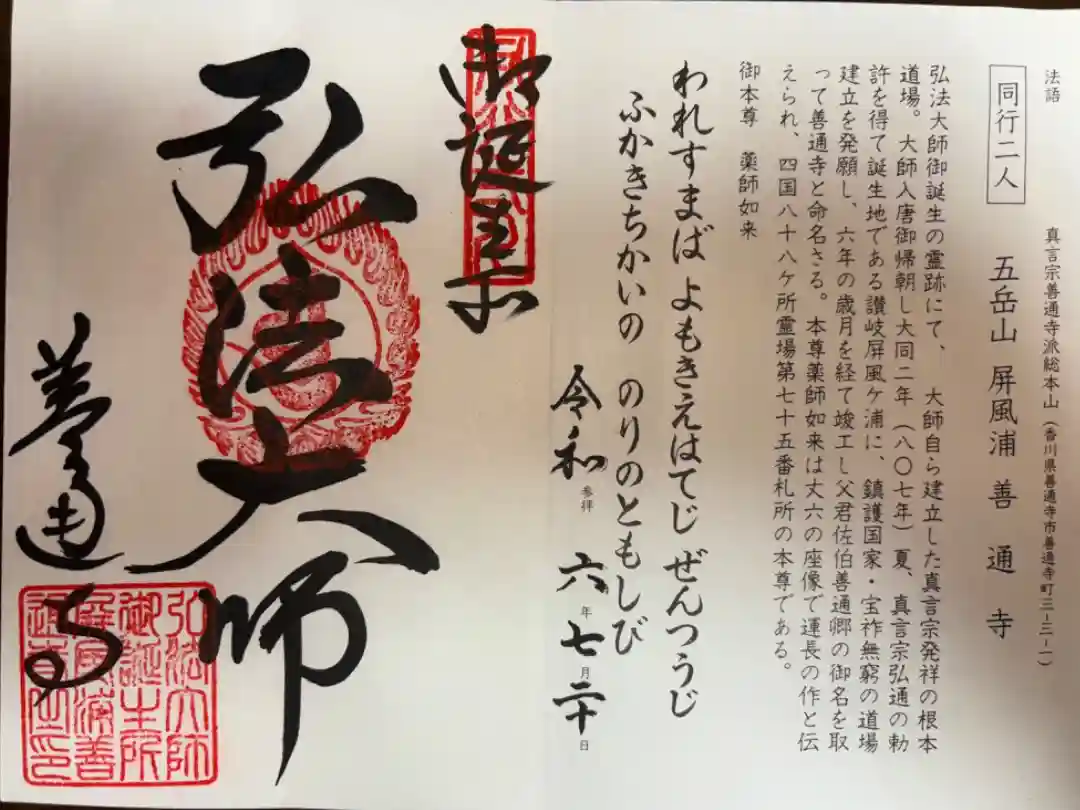 法語
真言宗善通寺派総本山(香川県善通寺市善通寺町三-三-一)
同行二人 五岳山 屏風浦 善通寺
弘法大師御誕生の霊跡にて、 大師自ら建立した真言宗発祥の根本
道場。大師入唐御帰朝し大同二年(八〇七年)夏、真言宗弘通の勅
許を得て誕生地である讃岐屏風ケ浦に、鎮護国家・宝祚無窮の道場
建立を発願し、六年の歳月を経て竣工し父君佐伯善通卿の御名を取
って善通寺と命名さる。本尊薬師如来は丈六の座像で運長の作と伝
えられ、四国八十八ケ所霊場第七十五番札所の本尊である。
御本尊 薬師如来
われすまば よもきえはてじ ぜんつうじ
ふかきちかいの のりのともしび
令和 参拝 六年七月二十日
御誕生所
弘法大師
善通寺
弘法大師
御誕生所
屏風浦善
通寺之印